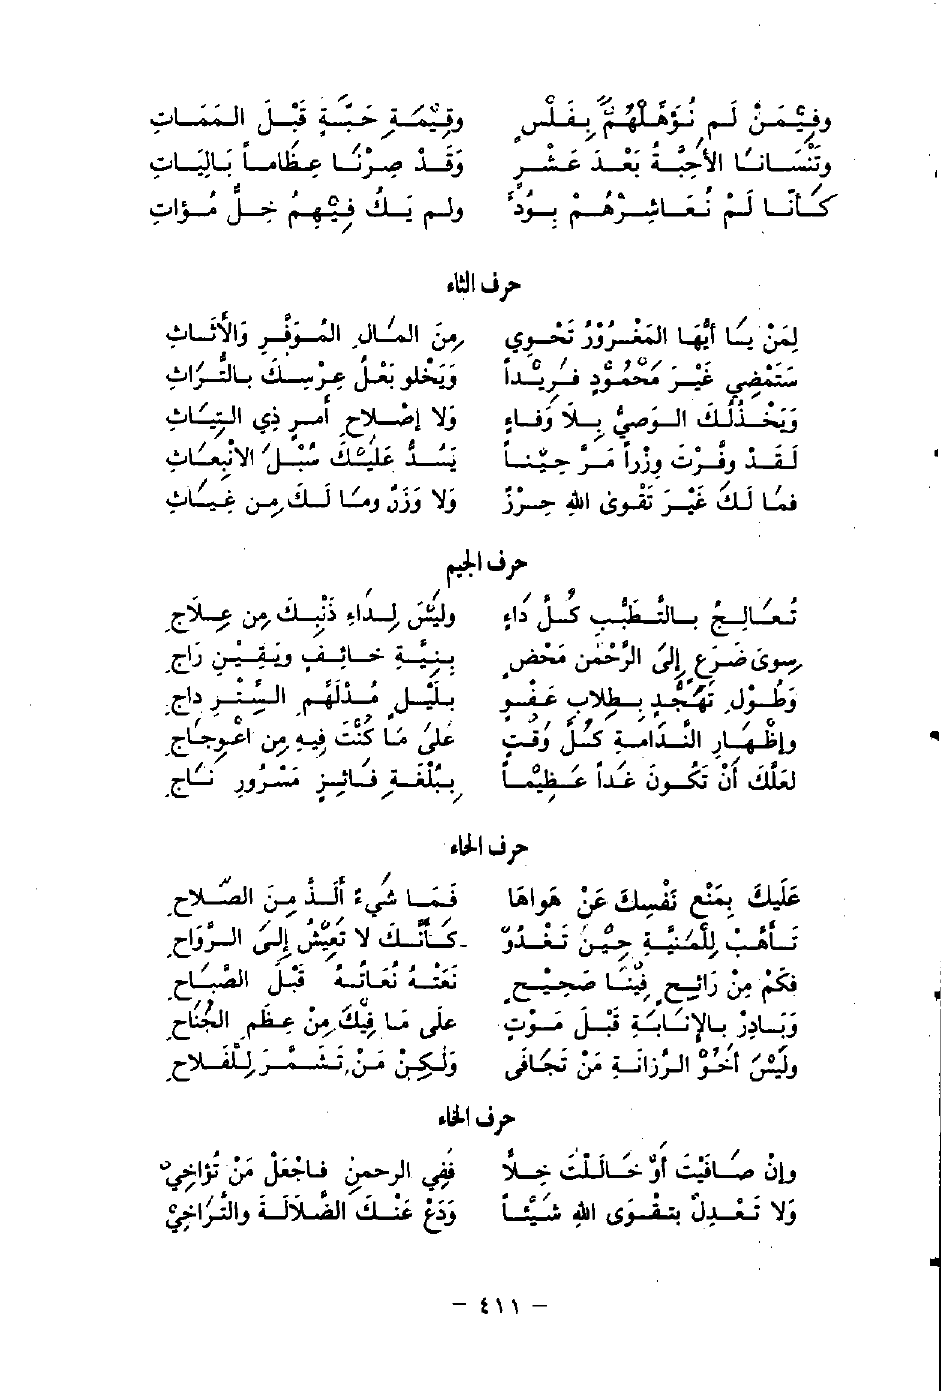 وفِيْمَنْ لَم نُؤَهِّلْهُمْ بِفَلْسٍ وقِيْمَةِ حَبَّةٍ قَبْلَ المَمَاتِ
وتَنْسَانَا الأحِبَّةُ بَعْدَ عَشْرٍ وَقَدْ صِرْنَا عِظَاماً بَالِيَاتِ
كَأنّا لَمْ نُعَاشِرْهُمْ بِوُدٍّ ولم يَكُ فِيْهِمُ خِلٌّ مُؤاتِ
حرف الثاء
لِمَنْ يَا أيُّهَا المَغْرُوْرُ تَحْوِي مِنَ المَالِ المُوَفَّرِ وَالأثَاثِ
سَتَمْضِي غَيْرَ مَحْمُوْدٍ فَرِيْداً وَيَخْلو بَعْلُ عِرْسِكَ بالتُّرَاثِ
وَيَخْذُلُكَ الوَصِيُّ بِلَا وَفَاءٍ وَلا إصْلاحِ أمرٍ ذِي التِيَاثِ
لَقَدْ وفَّرْتَ وِزْراً مَرَّ حِيْناً يَسُدُّ عَلَيْكَ سُبْلَ الانْبِعَاثِ
فمَا لَكَ غَيْرَ تَقْوى اللهِ حِرْزٌ وَلا وَزَرٌ ومَا لَكَ مِن غِيَاثِ
حرف الجيم
تُعَالِجُ بالتَّطَبُّبِ كُلَّ دَاءٍ وليْسَ لِدَاءِ ذَنْبِكَ مِن عِلَاجِ
سِوىَ ضَرَعٍ إلىَ الرَّحْمٰنِ مَحْضٍ بِنِيَّةِ خَائِفٍ ويَقِيْنِ رَاجِ
وَطُوْلِ تَهَجُّدٍ بِطِلابِ عَفْوٍ بِلَيْلٍ مُدْلَهِمِّ السِّتْرِ داجِ
وإظْهَارِ النَّدَامَةِ كُلَّ وَقْتٍ عَلىَ مَا كُنْتَ فِيهِ مِن اعْوِجَاجِ
لعَلَّكَ أنْ تَكُونَ غَداً عَظِيْماً بِبُلْغَةِ فَائِزٍ مَسْرُورٍ نَاجِ
حرف الحاء
عَلَيكَ بِمَنْعِ نَفْسِكَ عَنْ هَواهَا فَمَا شَيءٌ ألَذَّ مِنَ الصَّلاحِ
تَأهَّبْ لِلْمَنِيَّةِ حِيْنَ تَغْدُوْ كَأنَّكَ لا تَعِيْشُ إلىَ الرَّوَاحِ
فكَمْ مِنْ رَائِحٍ فِيْنَا صَحِيْحٍ نَعَتْهُ نُعَاتُهُ قَبْلَ الصَّبَاحِ
وَبَادِرْ بالإنَابَةِ قَبْلَ مَوْتٍ على مَا فِيْكَ مِنْ عِظَمِ الجُنَاحِ
ولَيْسَ أخُوْ الرَّزانَةِ مَنْ تَجَافَى وَلكِنْ مَنْ تَشَمَّرَ لِلْفَلاحِ
حرف الخاء
وإنْ صَافَيْتَ أوْ خَالَلْتَ خِلّاً ففِي الرحمنِ فاجْعَلْ مَنْ تُؤاخِيْ
وَلا تَعْدِلْ بتقْوَى اللهِ شَيْئاً وَدَعْ عَنْكَ الضَّلَالَةَ والتَّرَاخِيْ
– ٤١١ –